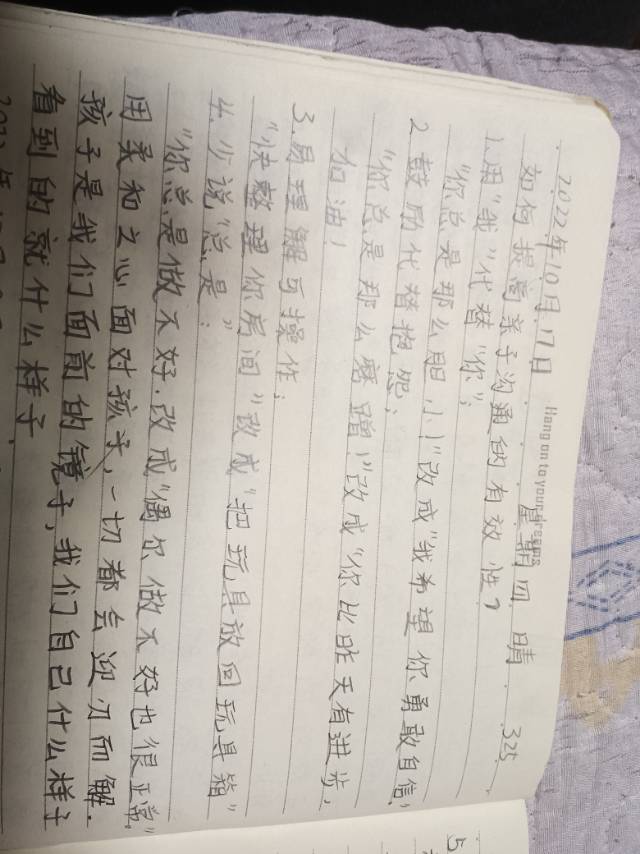 Hang on to your dreams
2022年10月.17日 星期四 晴 325
如何提高亲子沟通的有效性?
1.用"我"代替"你";
"你总是那么胆小!"改成"我希望你勇敢自信"
2.鼓励代替抱怨;
"你总是那么磨蹭!"改成"你比昨天有进步,
加油!
3.易理解可操作;
"快整理你房间"改成"把玩具放回玩具箱"
4.少说"总是";
"你总是做不好.改成"偶尔做不好也很正常"
用柔和之心面对孩子,一切都会迎刃而解.
孩子是我们面前的镜子,我们自己什么样子
看到的就什么样子
5